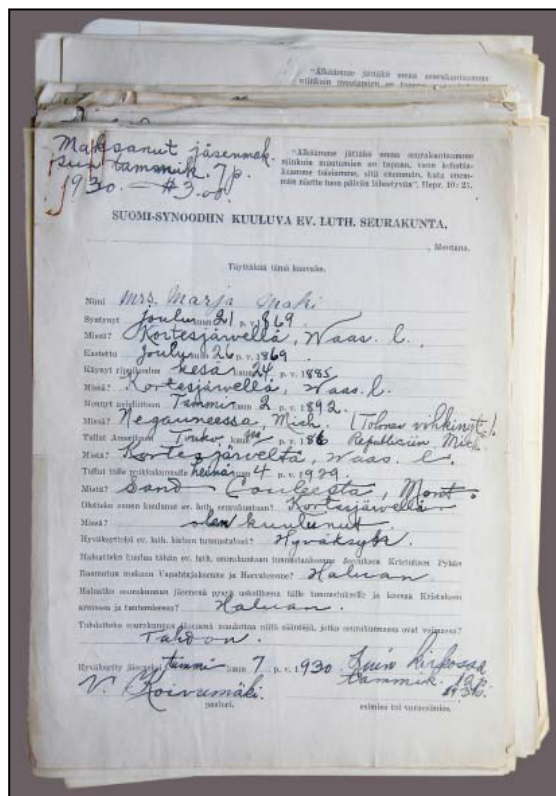 "Älkäämme jättäkö omaa seurakuntaamme
Maksanut jäsenmak.
sun tammik. 7 p.
1930. — $3.00.
"Älkäämme jättäkö omaa seurakuntaamme
niinkuin muutamien on tapana, vaan kehoitta-
kaamme toisiamme, sitä enemmän, kuta enem-
män näette tuon päivän lähestyvän". Hepr. 10: 25.
SUOMI-SYNOODIIN KUULUVA EV. LUTH. SEURAKUNTA.
, Montana.
Täyttäkää tämä kaavake.
Nimi Mrs. Marja Maki
Syntynyt joulu kuun 21 p. v. 1869.
Missä? Kortesjärvellä, Waas. l.
Kastettu Joulu kuun 26 p. v. 1869.
Käynyt rippikoulun kesä kuun 24 p. v. 1885
Missä? Kortesjärvellä, Waas. l.
Mennyt avioliittoon Tammi kuun 2 p. v. 1892.
Missä? Negauneessa, Mich.
Tullut Amerikaan Touko kuun p. v. 86 Republiciin Mich.
Mistä? Kortesjärveltä, Waas. l.
Tullut tälle paikkakunnalle heinä kuun 4 p. v. 1929.
Mistä? Sand Couleesta, Mont.
Oletteko ennen kuulunut ev. luth. seurakuntaan? Kortesjärvellä
Missä? olen kuulunut.
Hyväksyttekö ev. luth. kirkon tunnustuksen? Hyväksyn.
Haluatteko kuulua tähän ev. luth. seurakuntaan tunnustaaksenne Jeesuksen Kristuksen Pyhän
Raamatun mukaan Vapahtajaksenne ja Herraksenne? Haluan.
Haluatteko seurakunnan jäsenenä pysyä uskollisena tälle tunnustukselle ja kasvaa Kristuksen
armossa ja tuntemisessa? Haluan.
Tahdotteko seurakunnan jäsenenä noudattaa niitä sääntöjä, jotka seurakunnassa ovat voimassa?
Tahdon.
Hyväksytty jäseneksi tammi kuun 7 p. v. 1930 kirkossa
V. Koivumäki. tammik. 12 p.
1930.
pastori. esimies tai varaesimies.